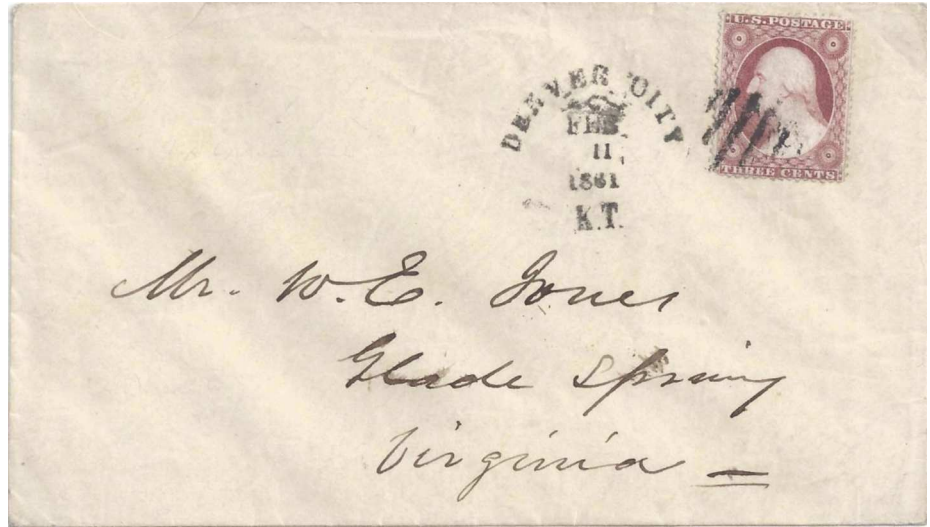 U.S. POSTAGE
THREE CENTS
DENVER CITY
FEB.
11
1861
K.T.
Mr. W. E. Jones
Glade Spring
Virginia